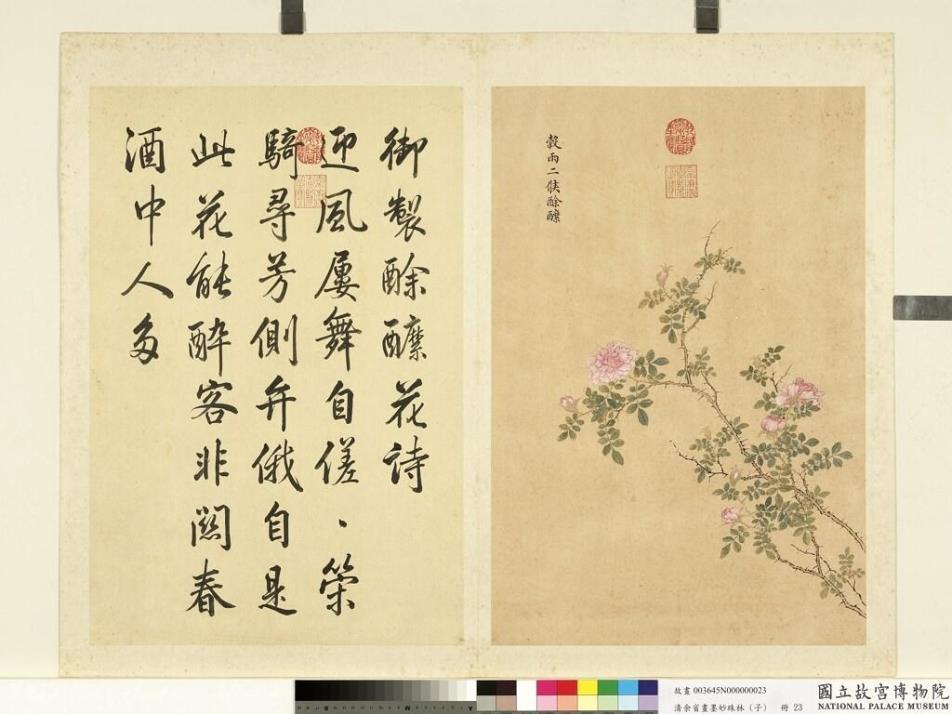 穀雨二候酴醾
御製酴醾花詩
迎風屢舞自傞、策
騎尋芳側弁俄自是
此花能醉客非關春
酒中人多
故畫 003645N000000023
清余省畫墨妙珠林（子） 冊 23
國立故宮博物院
NATIONAL PALACE MUSEUM